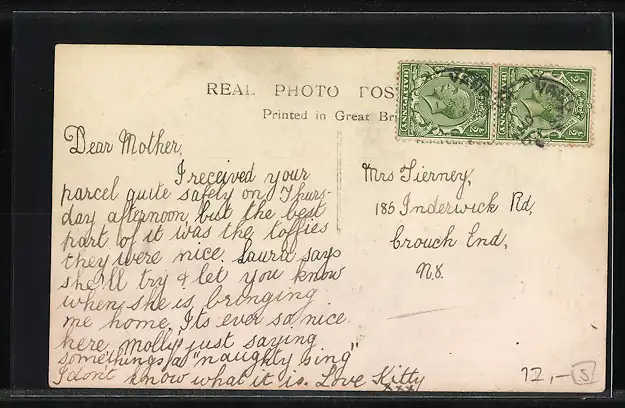 REAL PHOTO POS
Printed in Great Bri
Dear Mother,
I received your
parcel quite safely on Thurs-
day afternoon, but the best
part of it was the toffies
they were nice. Laura says
she'll try & let you know
when she is bringing
me home, It's ever so nice
here, molly just saying
somethings a "naughty sing"
I don't know what it is. Love Kitty
xxx
Mrs Tierney,
185 Inderwick Rd,
Crouch End,
N.8.
12,- S